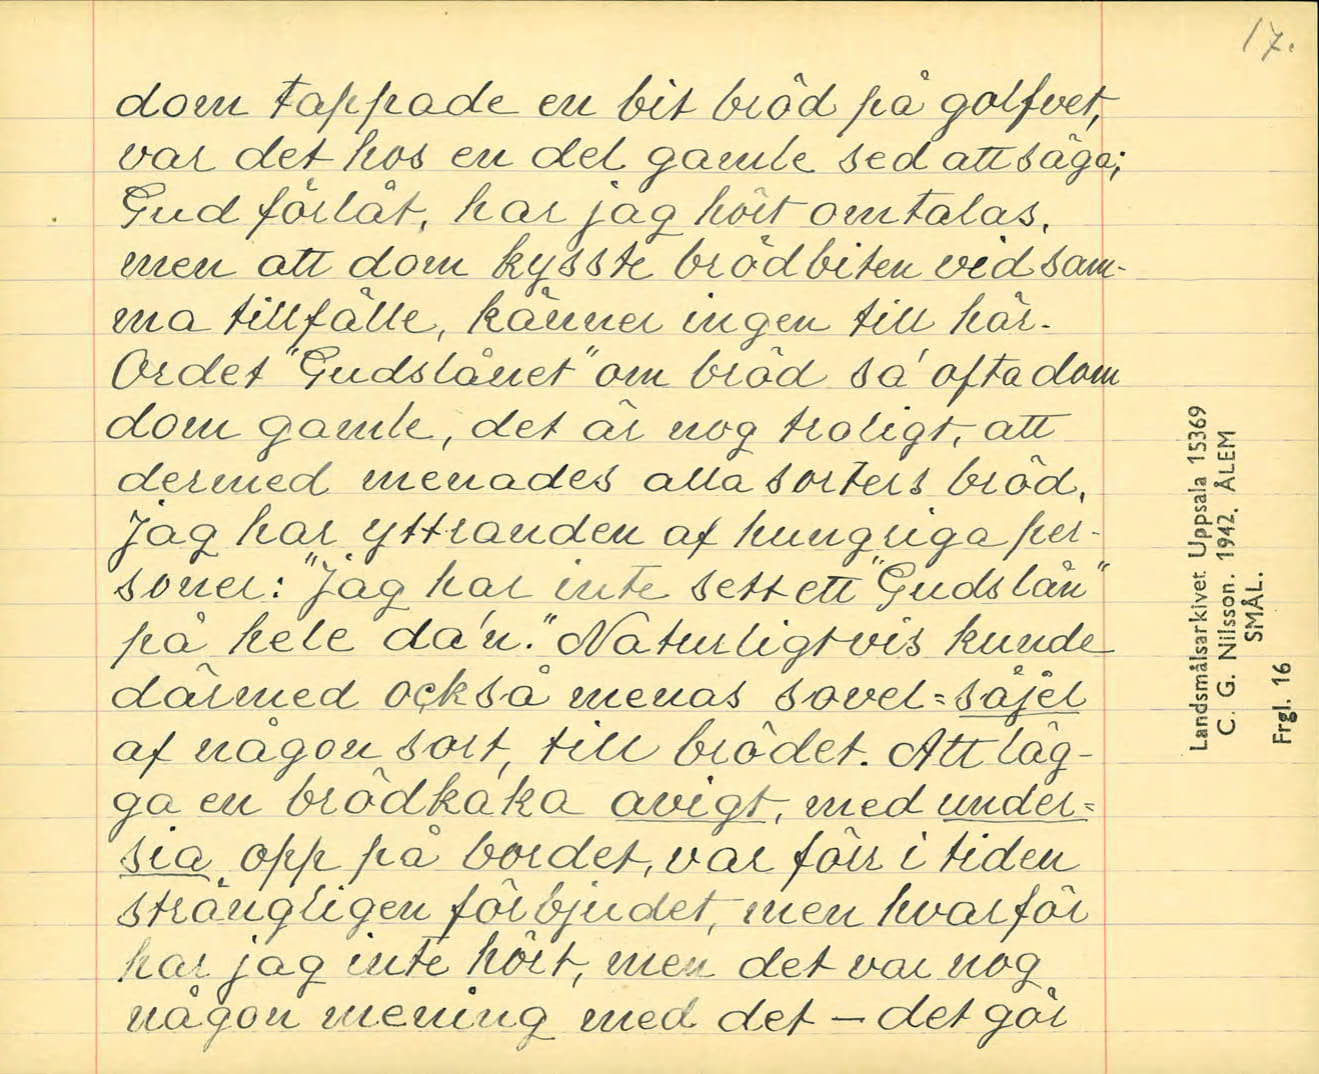 17.
dom tappade en bit bröd på golfvet,
var det hos en del gamle sed att säga;
Gud förlåt, har jag hört omtalas,
men att dom kysste brödbiten vid sam-
ma tillfälle, känner ingen till här.
Ordet "Gudslånet" om bröd sá ofta dom
dom gamle, det är nog troligt, att
dermed menades alla sorters bröd.
Jag har yttranden af hungriga per-
soner: "Jag har inte sett ett "Gudslån"
på hele da'n." Naturligtvis kunde
därmed också menas sovel=såjel
af någon sort, till brödet. Att läg-
ga en brödkaka avigt, med under=
sia opp på bordet, var förr i tiden
strängligen förbjudet, men hvarför
har jag inte hört, men det var nog
någon mening med det – det går
Landsmålsarkivet Uppsala 15369
C. G. Nilsson. 1942. ÅLEM
SMÅL.
Frgl. 16